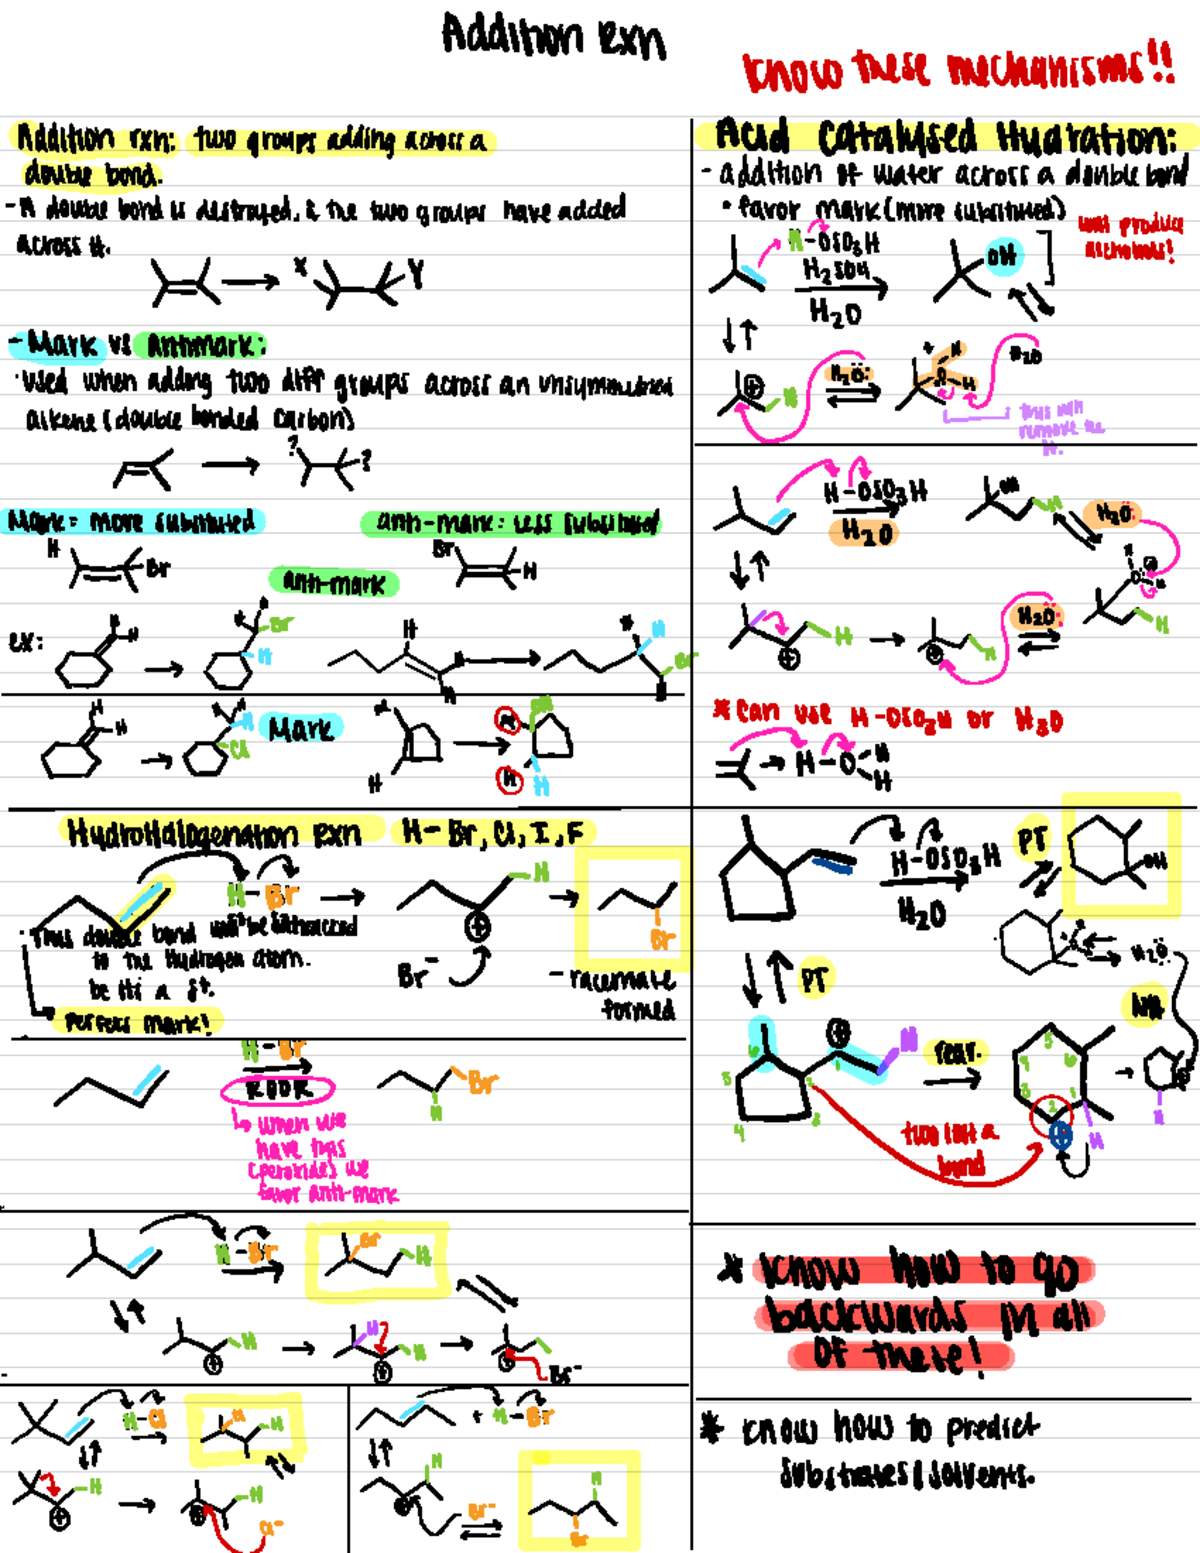 Addition rxn
Know these mechanisms!!
Addition rxn: two groups adding across a
double bond.
- A double bond is destroyed, & the two groups have added
across it.
X Y
- Mark vs antimark:
· used when adding two diff groups across an unsymmetrical
alkene (double bonded carbon)
? ?
Mark = more substituted
anti-mark: less substituted
H Br
Br H
anti-mark
ex:
H H
Br
H
H
H
Br
H H
H
Cl
Mark
H
H
H
Hydrohalogenation rxn H-Br, Cl, I, F
H-Br
H
Br
Br⁻
- racemate
formed
· This double bond will be
to the Hydrogen atom.
δ+.
perfect mark!
H-Br
ROOR
Br
H
↳ when we
have this
(peroxide) we
favor anti-mark
H-Br
Br H
H
H
H
Br⁻
H-Cl
H
H
H
Cl⁻
+ H-Br
H
Br⁻
H
Br
Acid Catalysed Hydration:
- addition of water across a double bond
· favor mark (more substituted)
will produce
alcohols!
H-OSO3H
H2SO4
H2O
OH
H
H2O:
H
O
H
H2O
this will
remove the
H.
H-OSO3H
H2O
OH
H
H2O:
H
H
H
H2O:
H
* can use H-OSO2H or H3O
H-O H
H
H-OSO3H
H2O
PT
OH
H2O:
PT
NA
H
rear.
H
H
two lost a
bond
* Know how to go
backwards in all
of these!
* Know how to predict
substrates & solvents.